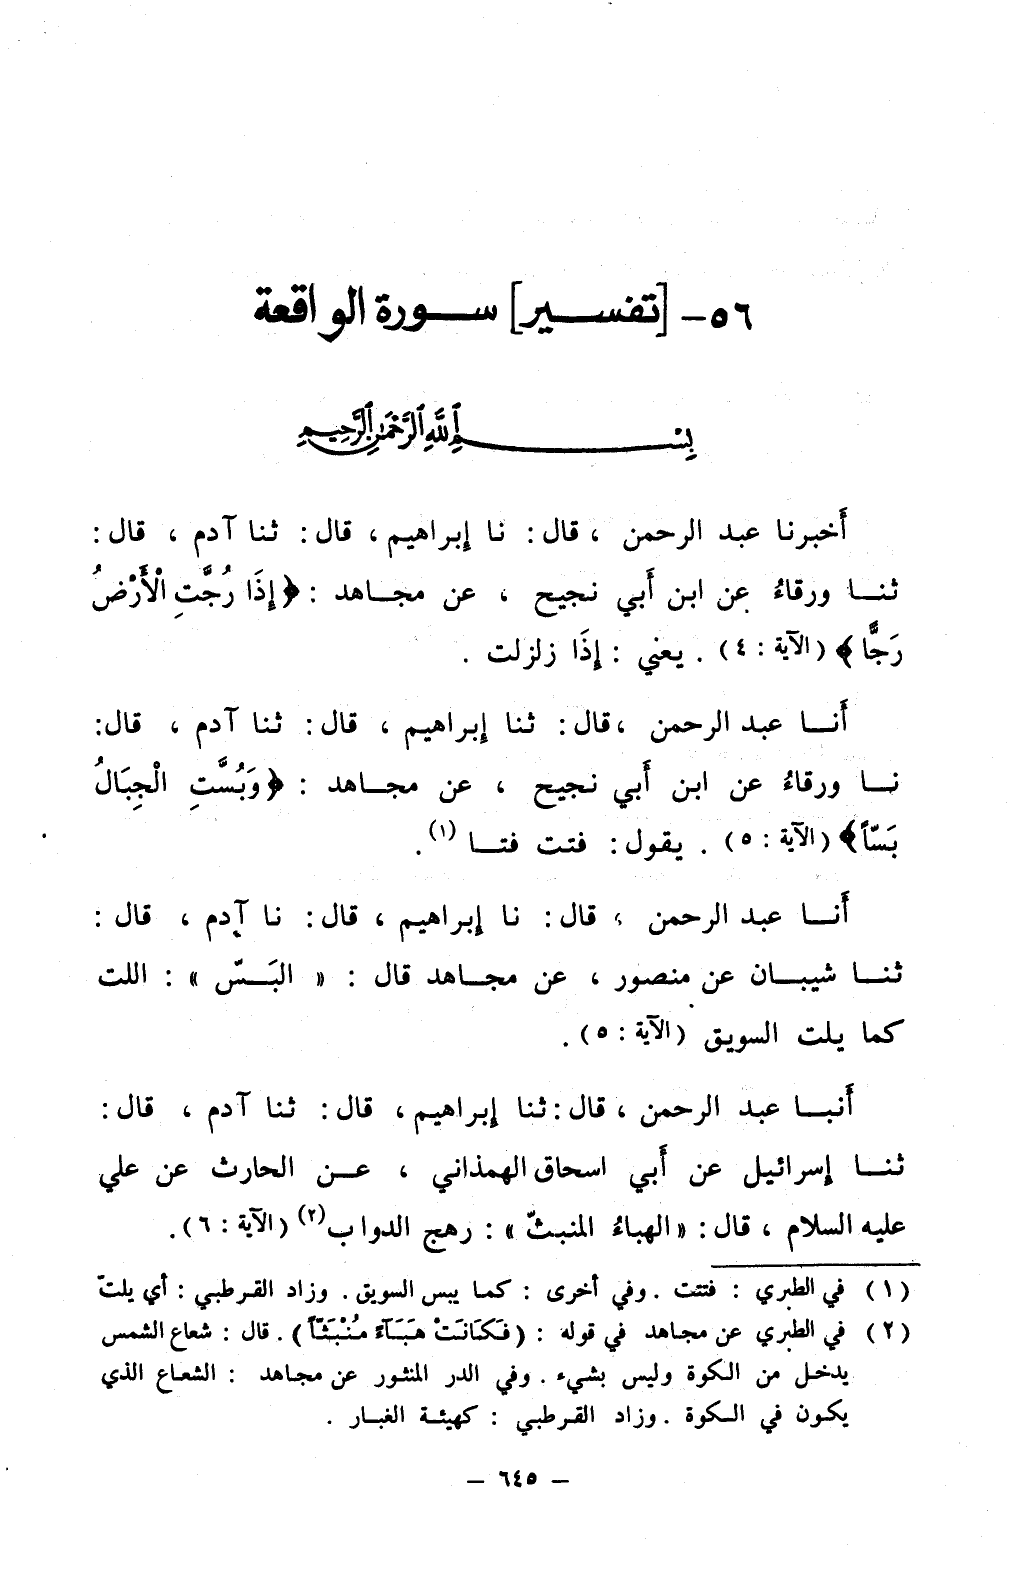 ٥٦- [تفسير] سورة الواقعة
بِسْمِ اللَّهِ الرَّحْمَٰنِ الرَّحِيمِ
أَخبرنا عبد الرحمن ، قال: نا إبراهيم، قال: ثنا آدم ، قال:
ثنا ورقاءُ عن ابن أَبي نجيح ، عن مجاهد : ﴿إِذَا رُجَّتِ الْأَرْضُ
رَجًّا﴾ (الآية : ٤) . يعني : إِذَا زلزلت .
أَنا عبد الرحمن ، قال: ثنا إبراهيم ، قال: ثنا آدم ، قال:
نا ورقاءُ عن ابن أَبي نجيح ، عن مجاهد : ﴿وَبُسَّتِ الْجِبَالُ
بَسًّا﴾ (الآية : ٥) . يقول: فتت فتا (١).
أَنا عبد الرحمن ، قال: نا إبراهيم ، قال: نا آدم ، قال :
ثنا شيبان عن منصور ، عن مجاهد قال : « البَسّ » : اللت
كما يلت السويق (الآية : ٥) .
أَنبا عبد الرحمن ، قال: ثنا إبراهيم، قال: ثنا آدم ، قال:
ثنا إسرائيل عن أَبي اسحاق الهمذاني ، عن الحارث عن علي
عليه السلام ، قال: «الهباءُ المنبثّ» : رهج الدواب(٢) (الآية : ٦).
(١) في الطبري : فتتت . وفي أخرى : كما يبس السويق . وزاد القرطبي : أي يلتّ
(٢) في الطبري عن مجاهد في قوله : (فَكَانَتْ هَبَآءً مُنْبَثًّا) . قال : شعاع الشمس
يدخل من الكوة وليس بشيء . وفي الدر المنثور عن مجاهد : الشعاع الذي
يكون في الكوة . وزاد القرطبي : كهيئة الغبار .
— ٦٤٥ —